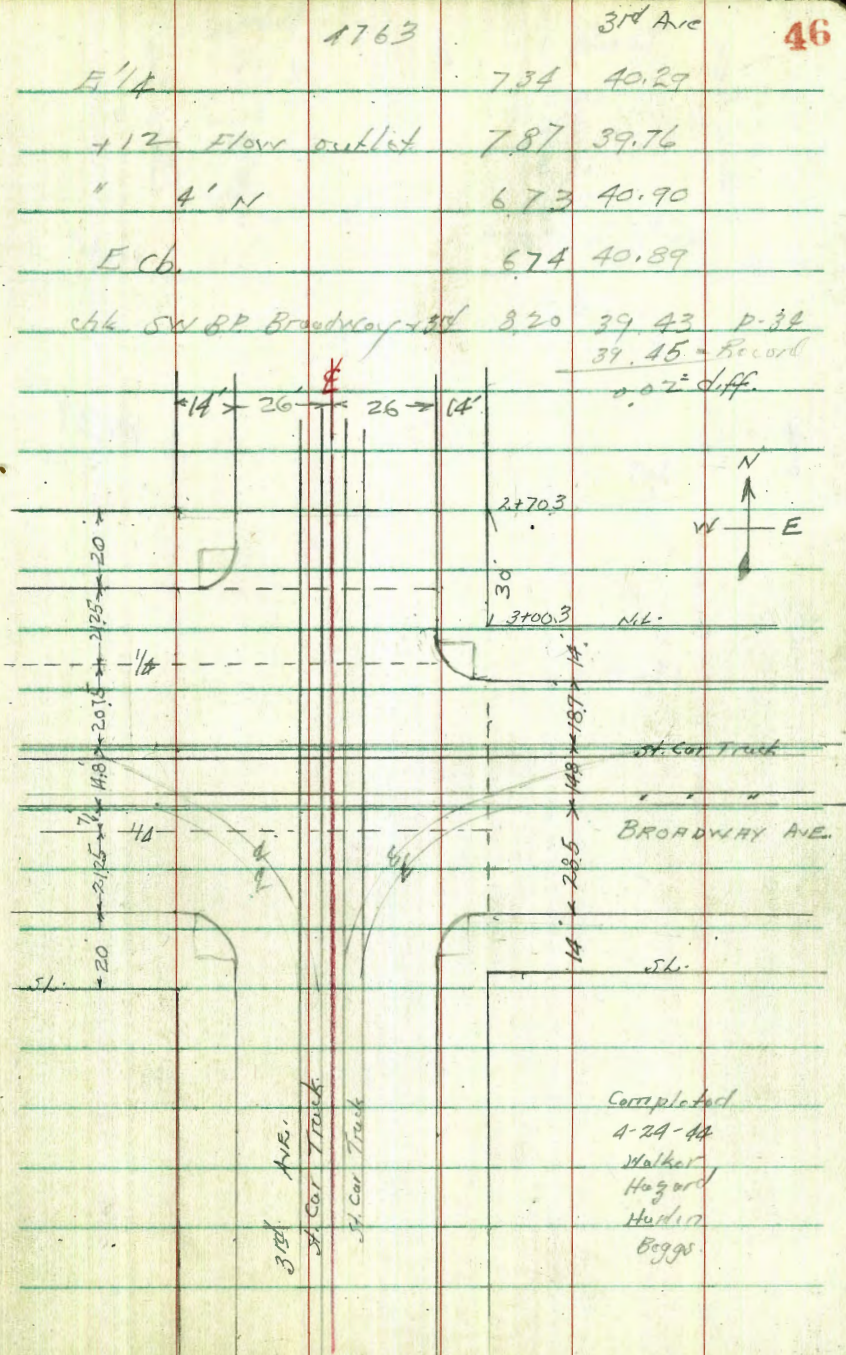 4763 3rd Ave 46
E 1/4 7.34 40.29
+12 Flow outlet 7.87 39.76
" 4' N 6.73 40.90
E cb. 6.74 40.89
chk SW BP. Broadway + 3rd 8.20 39.43 P-34
39.45 = Record
0.02± diff.
℄
14' 26' 26 14'
N
W E
2+70.3
30'
3+00.3 N.L.
20
21.25
20.75
14.8'
7'
21.25
20
1/4
1/4
14'
18.7
14.8
28.5
14'
St. Car Track
" " "
BROADWAY AVE.
S.L.
S.L.
3rd AVE.
St. Car Track
St. Car Track
Completed
4-24-44
Walker
Hazard
Hardin
Beggs